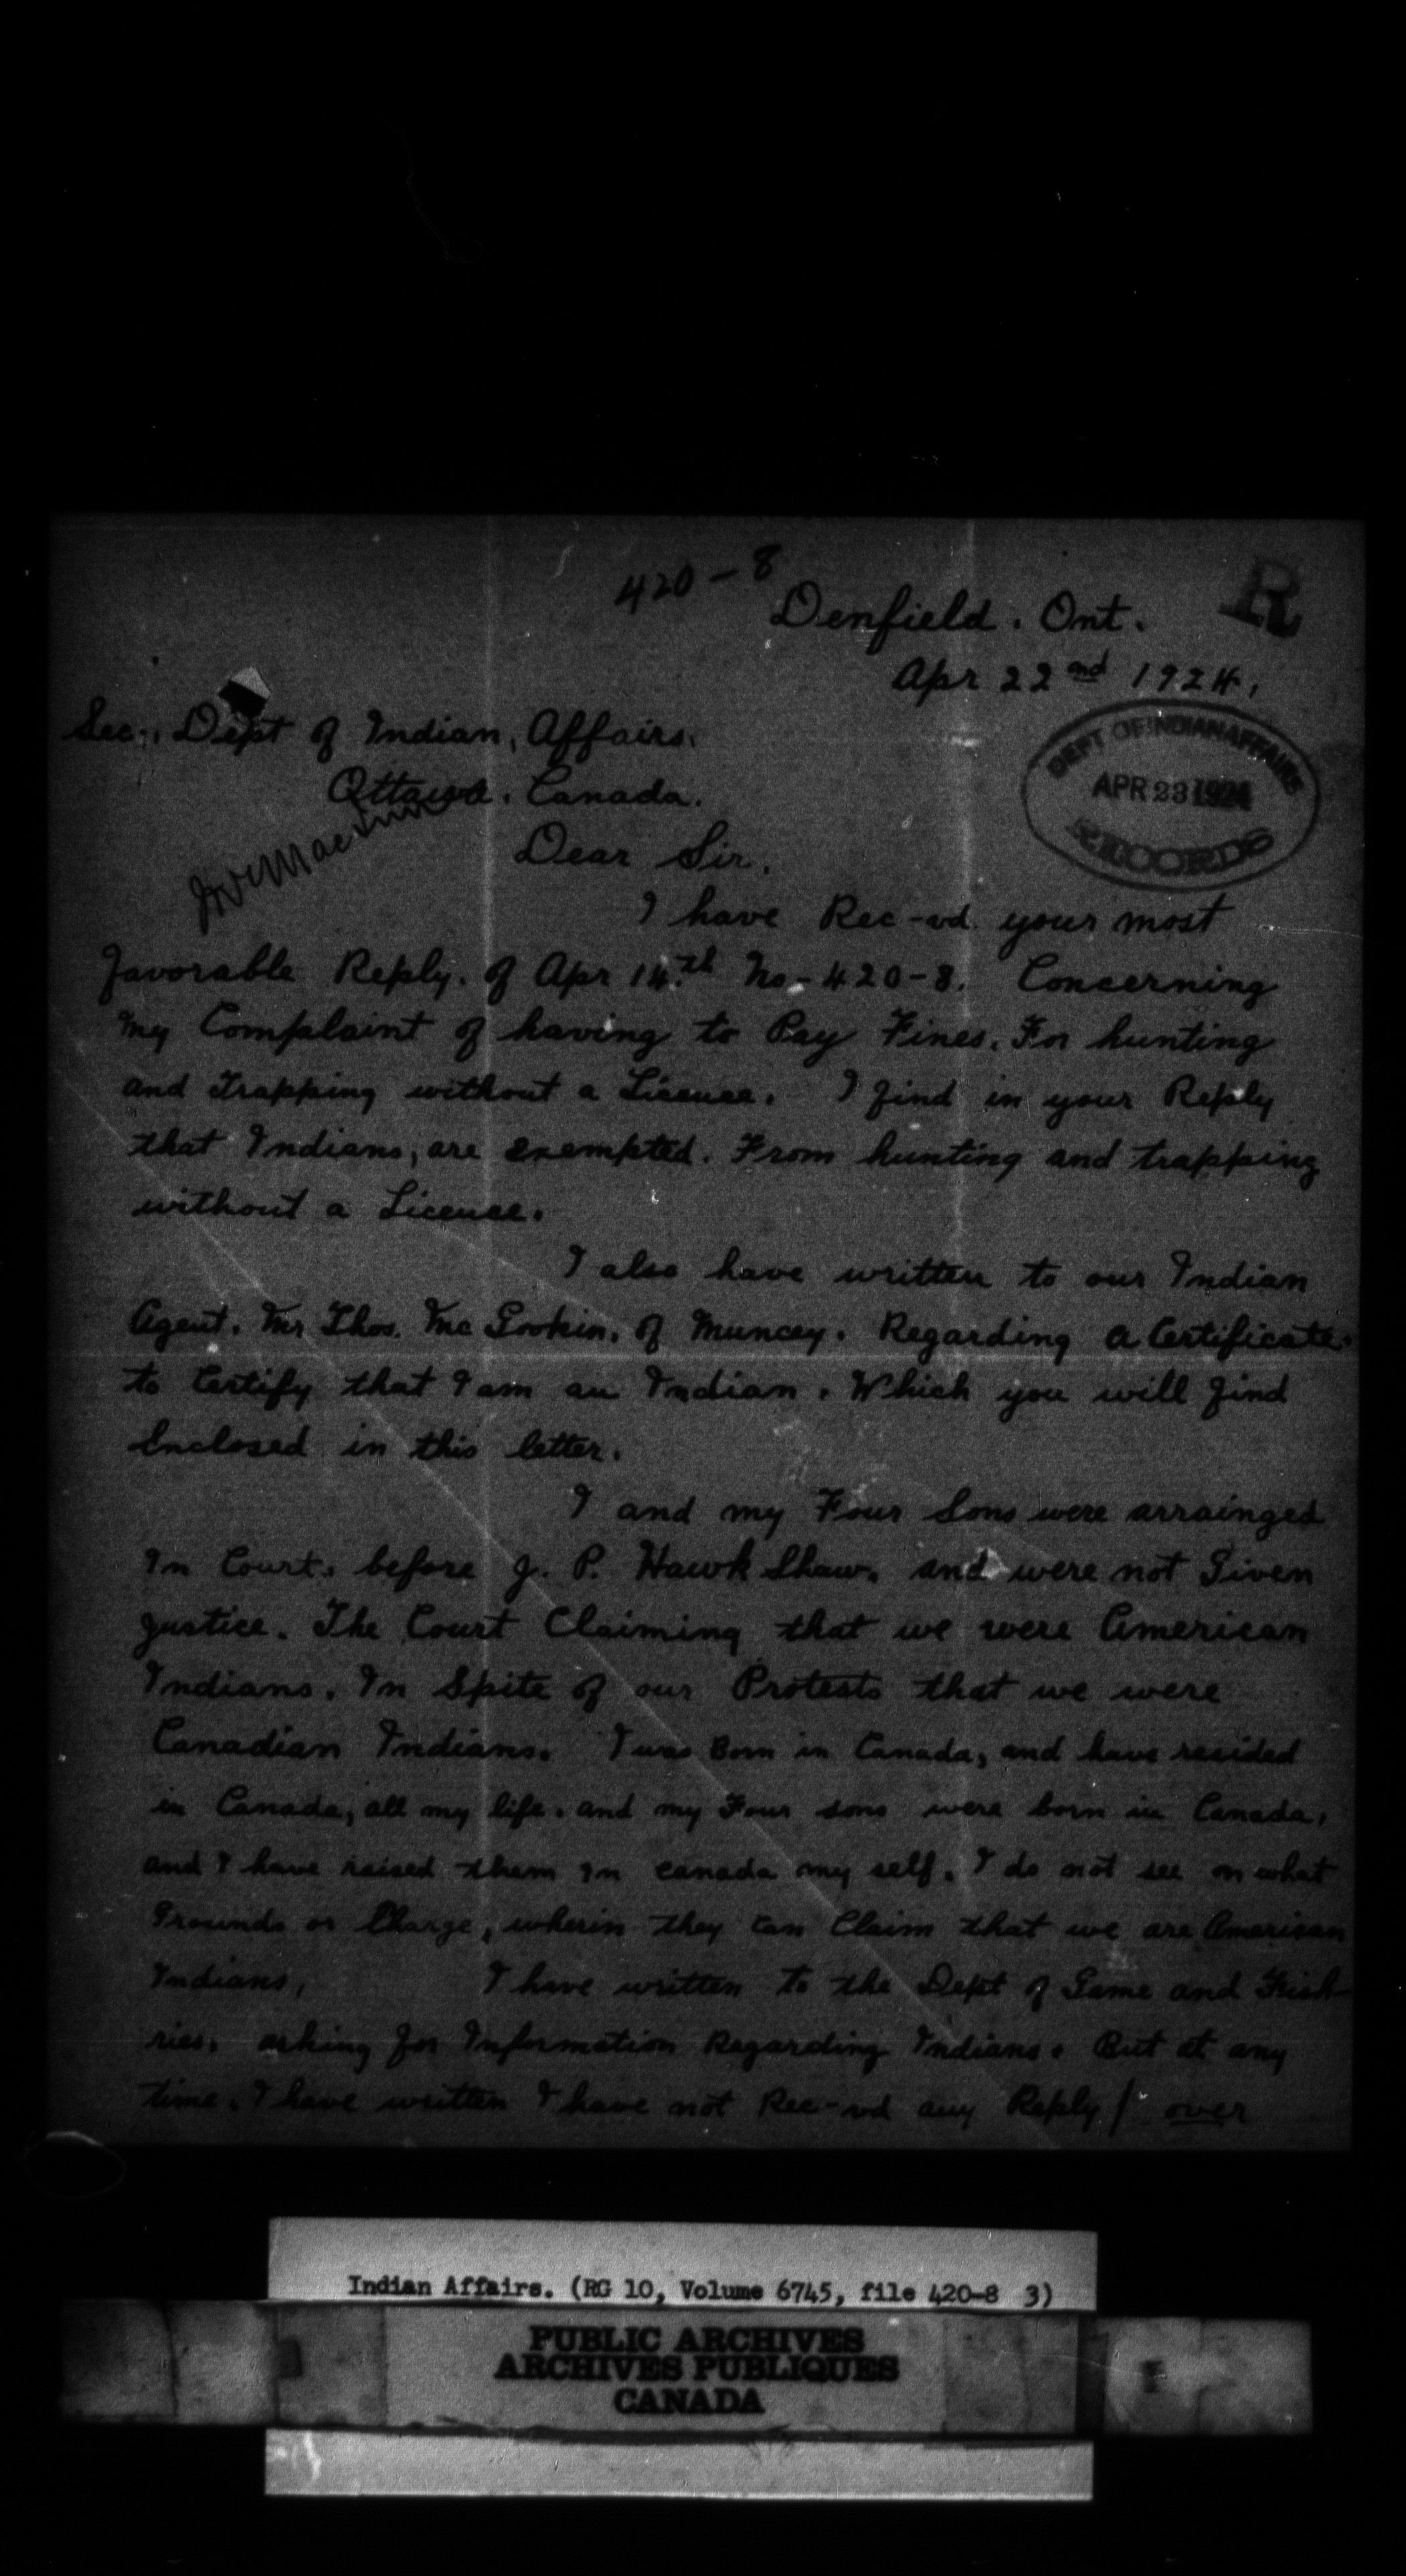 420-8
R
Denfield. Ont.
Apr 22nd 1924.
Sec., Dept of Indian, Affairs.
Ottawa. Canada.
DEPT OF INDIAN AFFAIRS
APR 23 1924
RECORDS
Dear Sir.
I have Rec-vd your most
favorable Reply. of Apr 14th No.-420-8. Concerning
my Complaint of having to Pay Fines. For hunting
and Trapping without a Licence. I find in your Reply
that Indians, are exempted. From hunting and trapping
without a Licence.
I also have written to our Indian
Agent. Mr Thos. Mc Gookin. of Muncey. Regarding a Certificate.
to Certify that I am an Indian. Which you will find
Enclosed in this letter.
I and my Four Sons were arrainged
In Court. before J. P. Hawk Shaw. and were not Given
justice. The Court Claiming that we were American
Indians. In Spite of our Protests that we were
Canadian Indians. I was Born in Canada, and have resided
in Canada, all my life. and my Four sons were born in Canada,
and I have raised them In canada my self. I do not see on what
Grounds or Charge, wherin they can Claim that we are American
Indians, I have written to the Dept of Game and Fish-
ries. asking for Information Regarding Indians. But at any
time. I have written I have not Rec-vd any Reply / over
Indian Affairs. (RG 10, Volume 6745, file 420-8 3)
PUBLIC ARCHIVES
ARCHIVES PUBLIQUES
CANADA